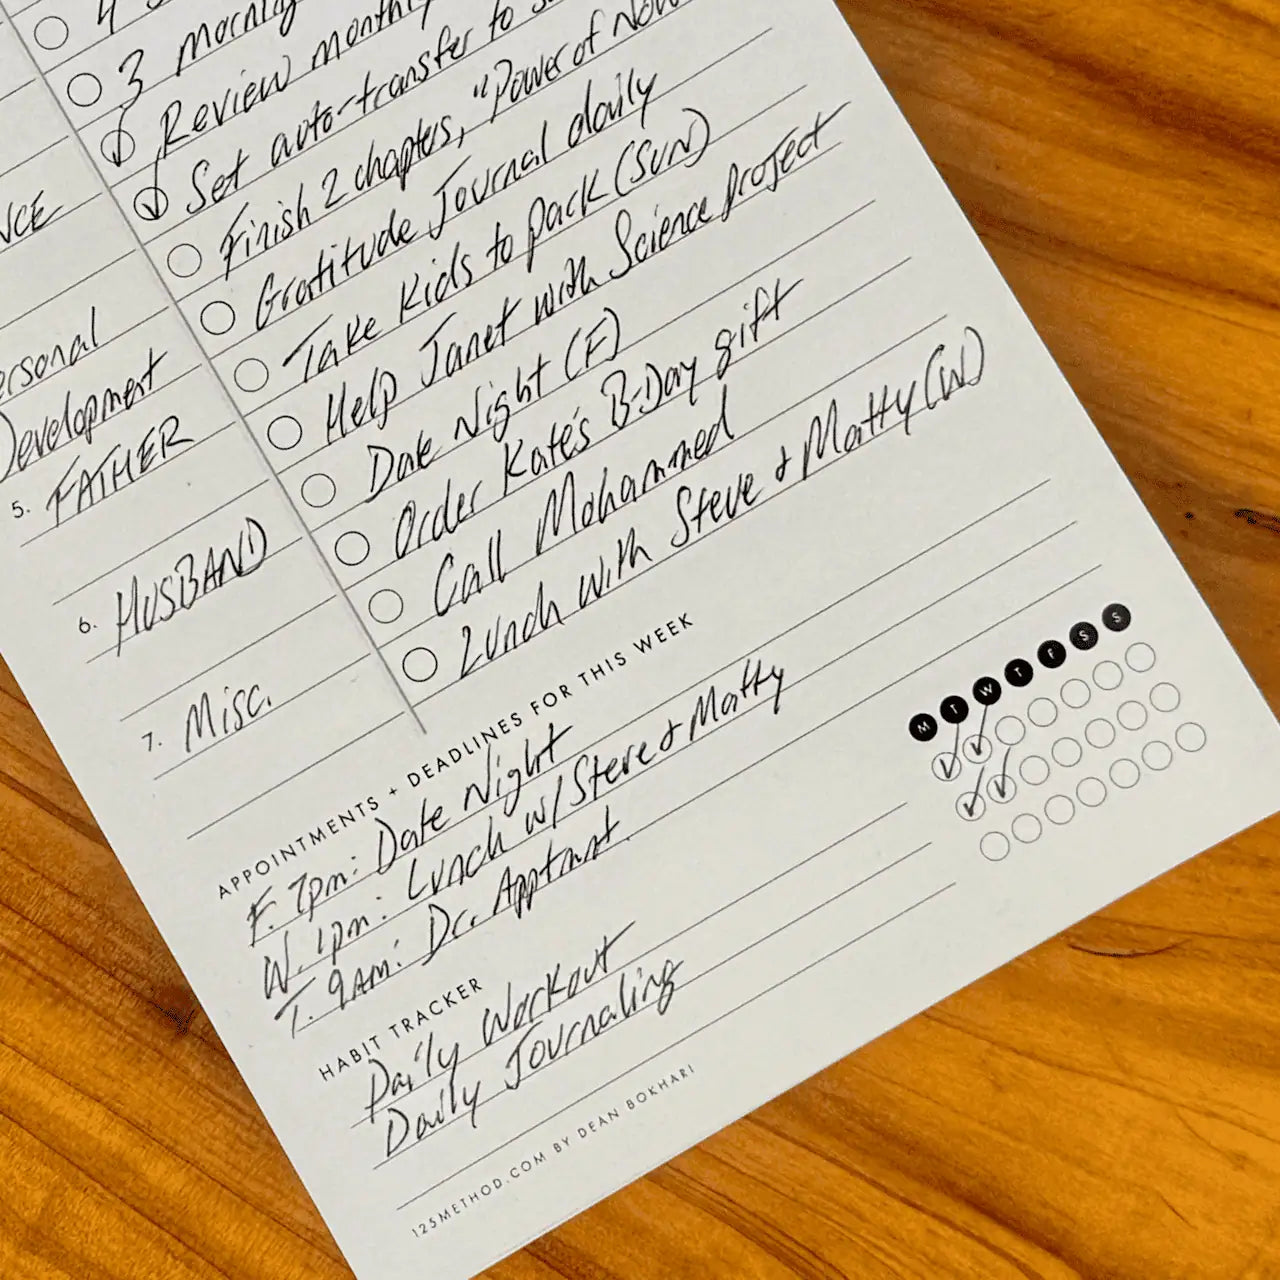 3 morning
Review monthly
Set auto-transfer to
Finish 2 chapters, "Power of Now
Gratitude Journal daily
Take Kids to park (SUN)
Help Janet with Science project
Date Night (F)
Order Kate's B-Day gift
Call Mohammed
Lunch with Steve & Matty (W)
Personal
Development
5. FATHER
6. HUSBAND
7. Misc.
APPOINTMENTS + DEADLINES FOR THIS WEEK
F. 7pm: Date Night
W. 1pm: Lunch w/ Steve & Matty
T. 9AM: Dr. Apptmnt.
M T W T F S S
HABIT TRACKER
Daily Workout
Daily Journaling
125METHOD.COM BY DEAN BOKHARI